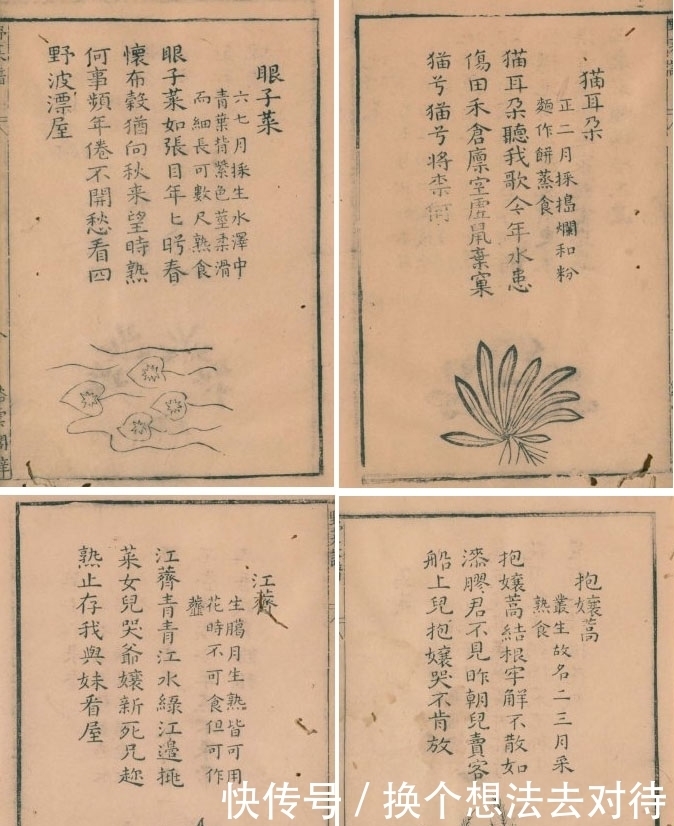 眼子菜
六七月採生水澤中
青葉背紫色莖柔滑
而細長可數尺熟食
眼子菜如張目年匕盻春
懷布穀猶向秋来望時熟
何事頻年倦不開愁看四
野波漂屋
猫耳朶
正二月採搗爛和粉
麵作餅蒸食
猫耳朶聽我歌今年水患
傷田禾倉廪空虛鼠棄窠
猫兮猫兮將柰何
江薺
生臈月生熟皆可用
花時不可食但可作
虀
江薺青青江水綠江邊挑
菜女兒哭爺孃新死兄趂
熟止存我與妹看屋
抱孃蒿
叢生故名二三月采
熟食
抱孃蒿結根牢解不散如
漆膠君不見昨朝兒賣客
船上兒抱孃哭不肯放
快传号 / 换个想法去对待